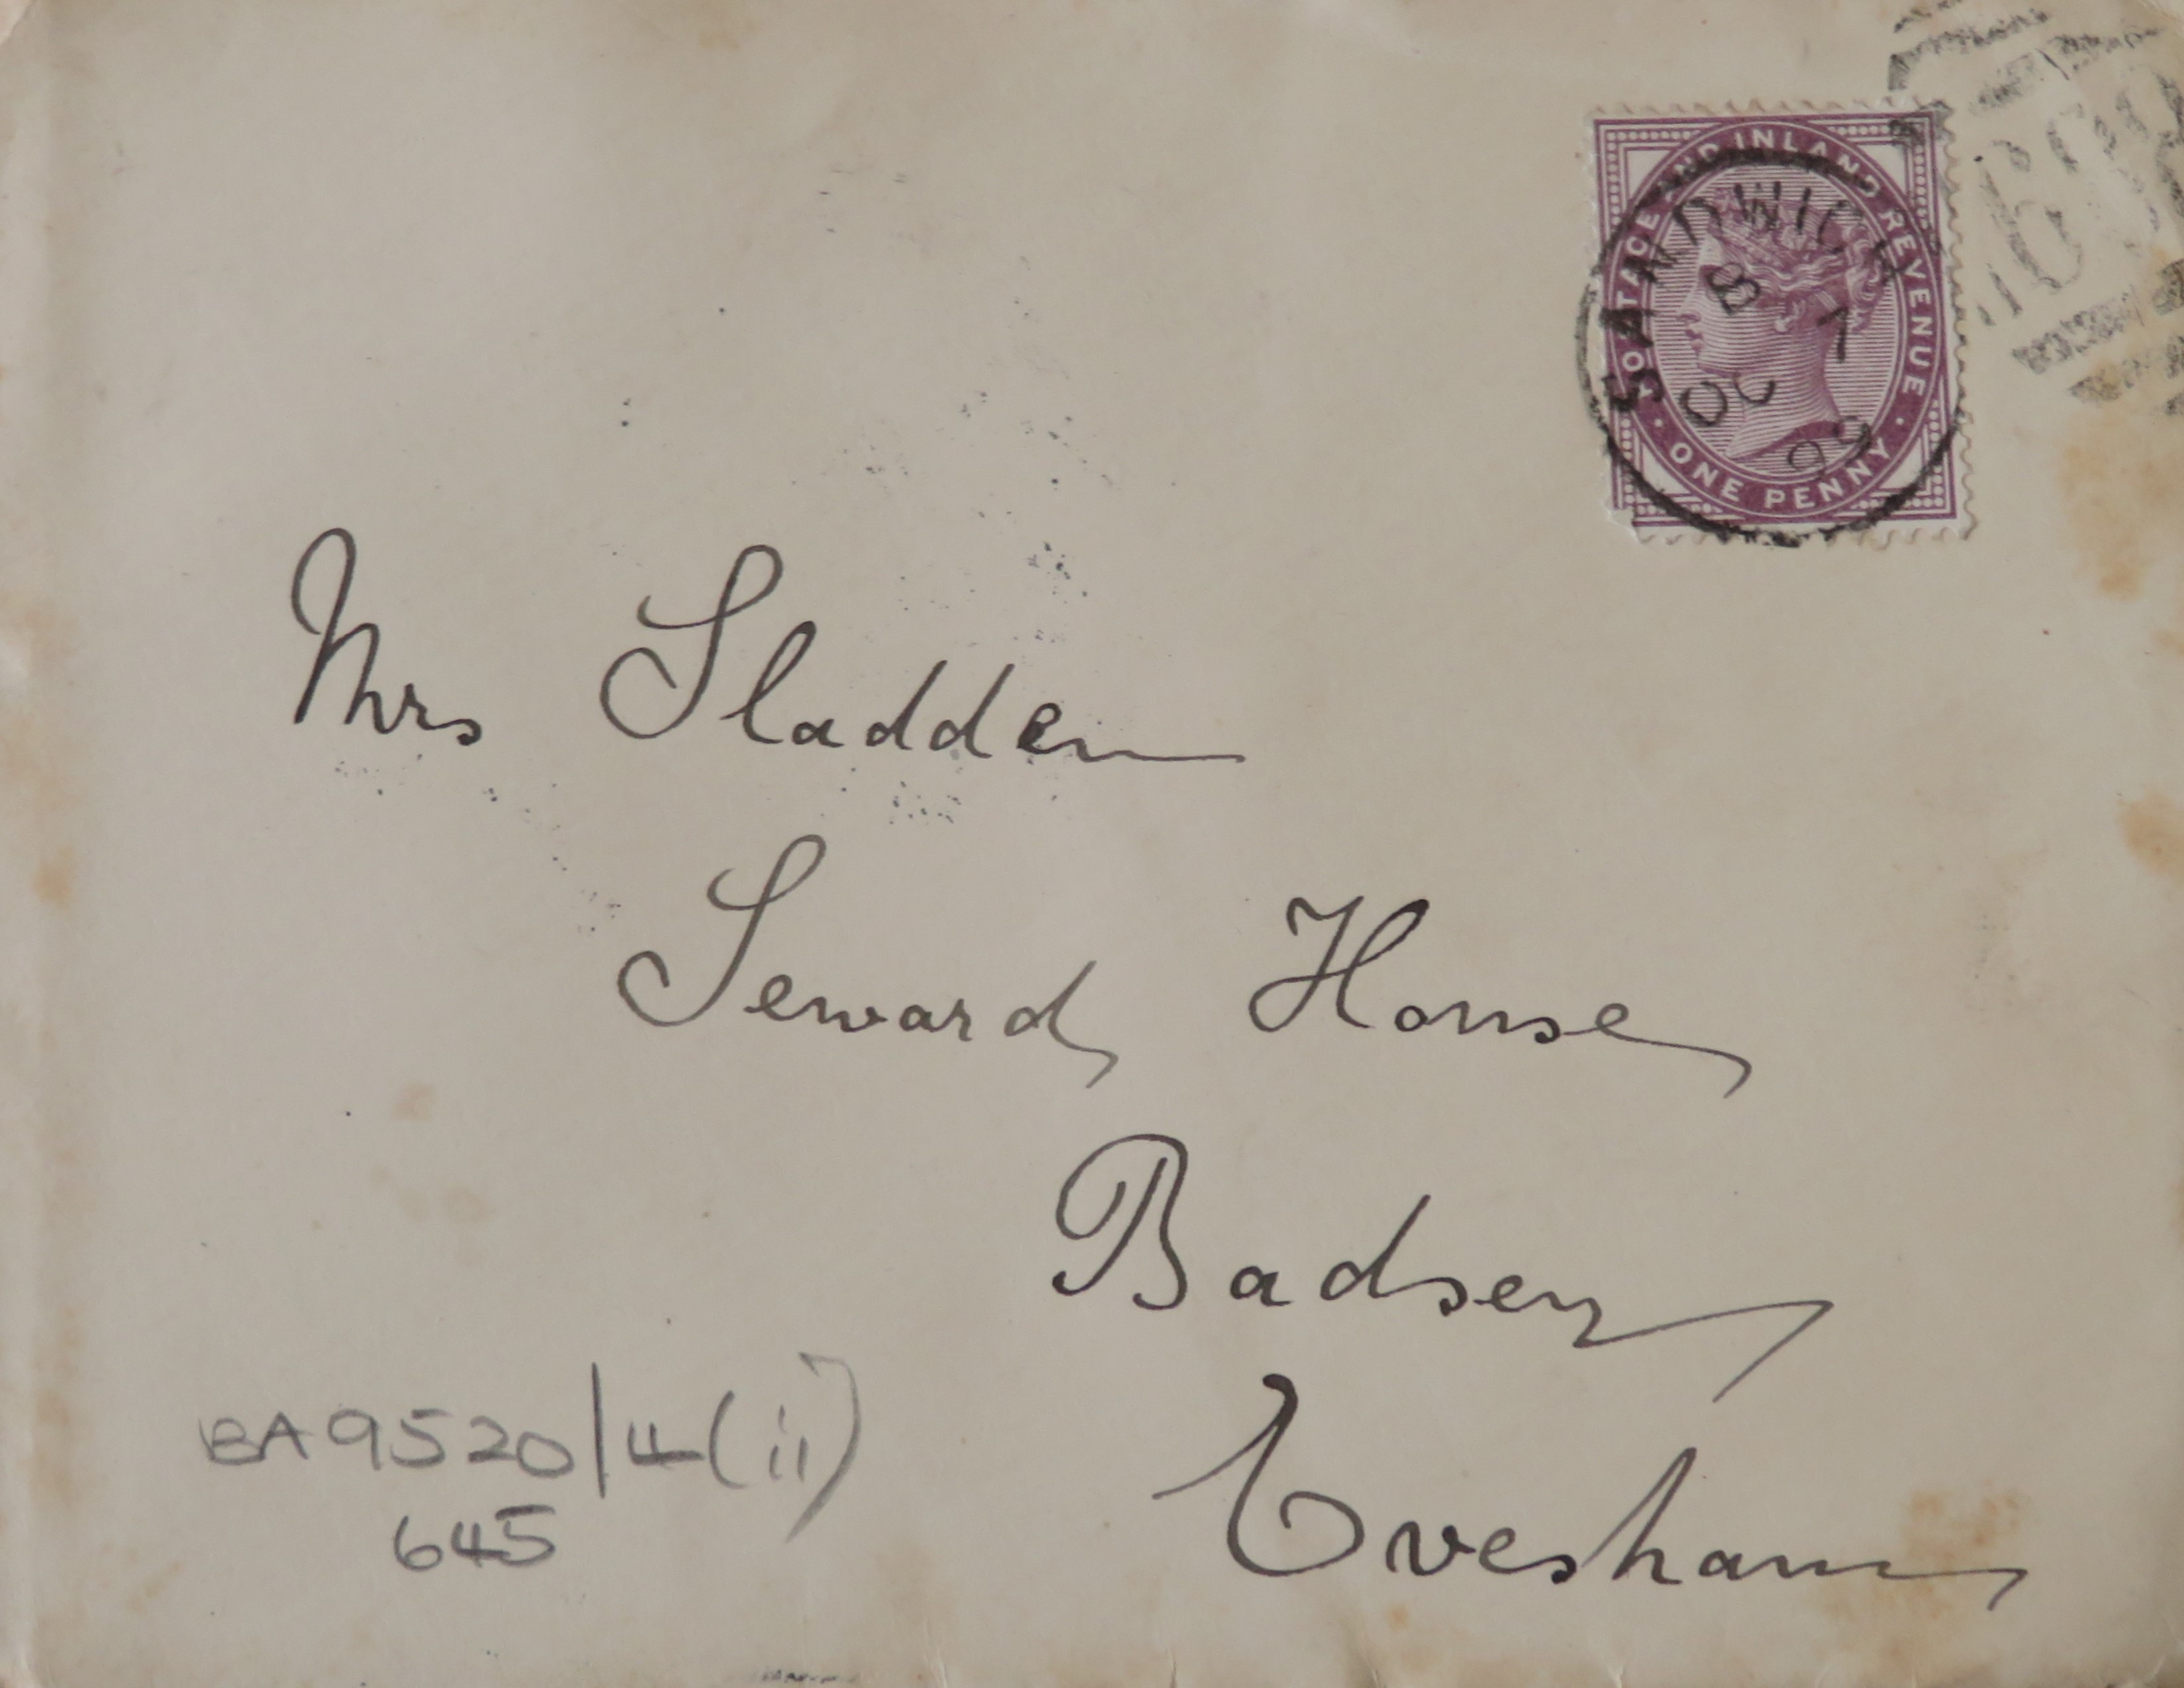 POSTAGE AND INLAND REVENUE
ONE PENNY
SANDWICH
8
OC 7
99
Mrs Sladden
Seward House,
Badsey,
Evesham
BA9520/4(ii)
645